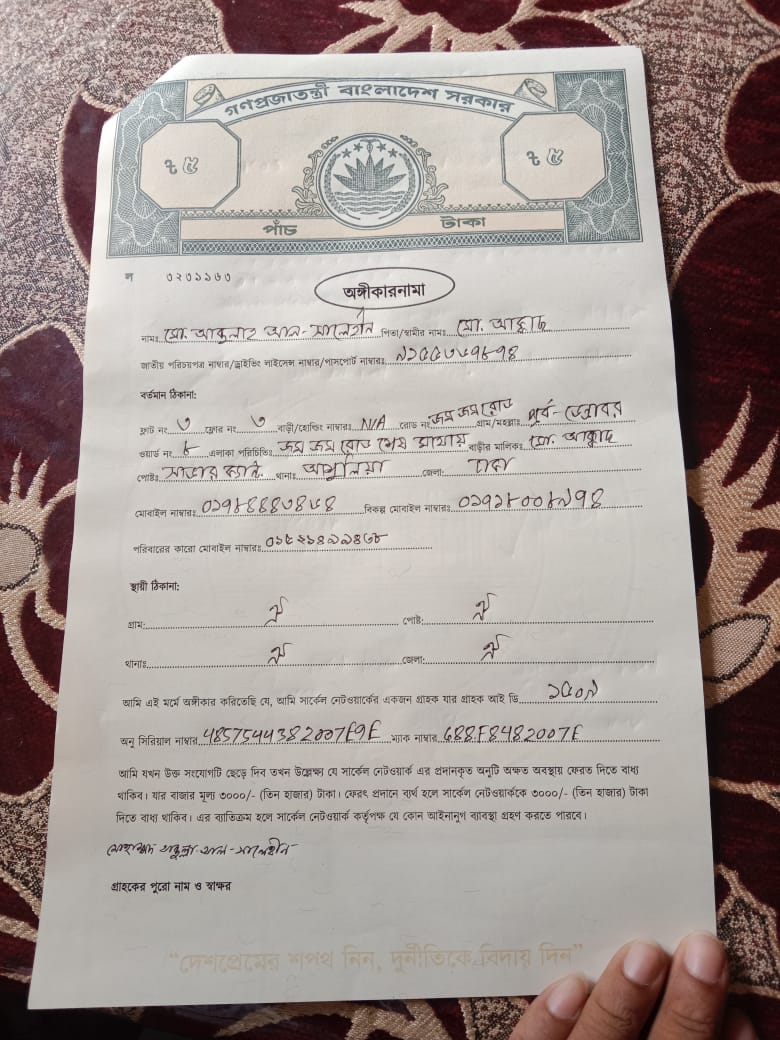 গণপ্রজাতন্ত্রী বাংলাদেশ সরকার
৳ ৫ ৳ ৫
পাঁচ টাকা
ল ০২০১১৬০
অঙ্গীকারনামা
নামঃ মো. আব্দুলাহ আল-সালেহীন পিতা/স্বামীর নামঃ মো.
জাতীয় পরিচয়পত্র নাম্বার/ড্রাইভিং লাইসেন্স নাম্বার/পাসপোর্ট নাম্বারঃ
বর্তমান ঠিকানা:
ফ্লাট নং ৩ ফ্লোর নং ৩ বাড়ী/হোল্ডিং নাম্বারঃ N/A রোড নং জম জম রোড গ্রাম/মহল্লাঃ পূর্ব-ডেন্ডাবর
ওয়ার্ড নং ৮ এলাকা পরিচিতিঃ জম জম রোড শেষ মাথায় বাড়ীর মালিকঃ মো.
পোষ্টঃ সাভার ক্যান্ট. থানাঃ আশুলিয়া জেলা: ঢাকা
মোবাইল নাম্বারঃ বিকল্প মোবাইল নাম্বারঃ
পরিবারের কারো মোবাইল নাম্বারঃ
স্থায়ী ঠিকানা:
গ্রাম: ঐ পোষ্ট: ঐ
থানাঃ ঐ জেলা: ঐ
আমি এই মর্মে অঙ্গীকার করিতেছি যে, আমি সার্কেল নেটওয়ার্কের একজন গ্রাহক যার গ্রাহক আই ডি ১৫০৯
অনু সিরিয়াল নাম্বার 4857544382007E9E ম্যাক নাম্বার 688F8482007E
আমি যখন উক্ত সংযোগটি ছেড়ে দিব তখন উল্লেক্ষ্য যে সার্কেল নেটওয়ার্ক এর প্রদানকৃত অনুটি অক্ষত অবস্থায় ফেরত দিতে বাধ্য
থাকিব। যার বাজার মূল্য ৩০০০/- (তিন হাজার) টাকা। ফেরৎ প্রদানে ব্যর্থ হলে সার্কেল নেটওয়ার্ককে ৩০০০/- (তিন হাজার) টাকা
দিতে বাধ্য থাকিব। এর ব্যতিক্রম হলে সার্কেল নেটওয়ার্ক কর্তৃপক্ষ যে কোন আইনানুগ ব্যবস্থা গ্রহণ করতে পারবে।
মোহাম্মদ আব্দুল্লা আল-সালেহীন
গ্রাহকের পুরো নাম ও স্বাক্ষর
“দেশপ্রেমের শপথ নিন, দুর্নীতিকে বিদায় দিন”